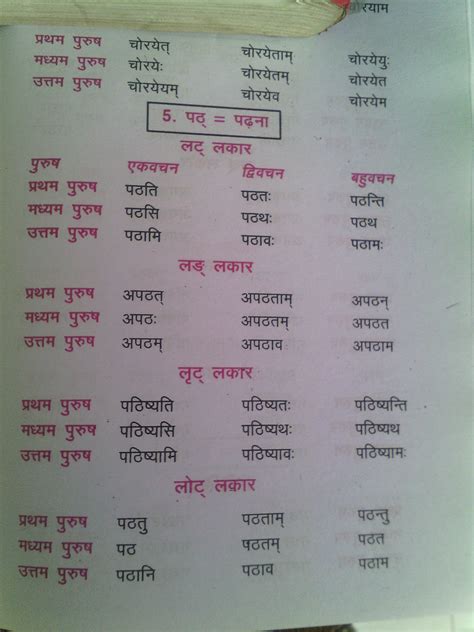 रयाम
प्रथम पुरुष चोरयेत् चोरयेताम् चोरयेयुः
मध्यम पुरुष चोरयेः चोरयेतम् चोरयेत
उत्तम पुरुष चोरयेयम् चोरयेव चोरयेम
5. पठ् = पढ़ना
लट् लकार
पुरुष एकवचन द्विवचन बहुवचन
प्रथम पुरुष पठति पठतः पठन्ति
मध्यम पुरुष पठसि पठथः पठथ
उत्तम पुरुष पठामि पठावः पठामः
लङ् लकार
प्रथम पुरुष अपठत् अपठताम् अपठन्
मध्यम पुरुष अपठः अपठतम् अपठत
उत्तम पुरुष अपठम् अपठाव अपठाम
लृट् लकार
प्रथम पुरुष पठिष्यति पठिष्यतः पठिष्यन्ति
मध्यम पुरुष पठिष्यसि पठिष्यथः पठिष्यथ
उत्तम पुरुष पठिष्यामि पठिष्यावः पठिष्यामः
लोट् लकार
प्रथम पुरुष पठतु पठताम् पठन्तु
मध्यम पुरुष पठ पठतम् पठत
उत्तम पुरुष पठानि पठाव पठाम